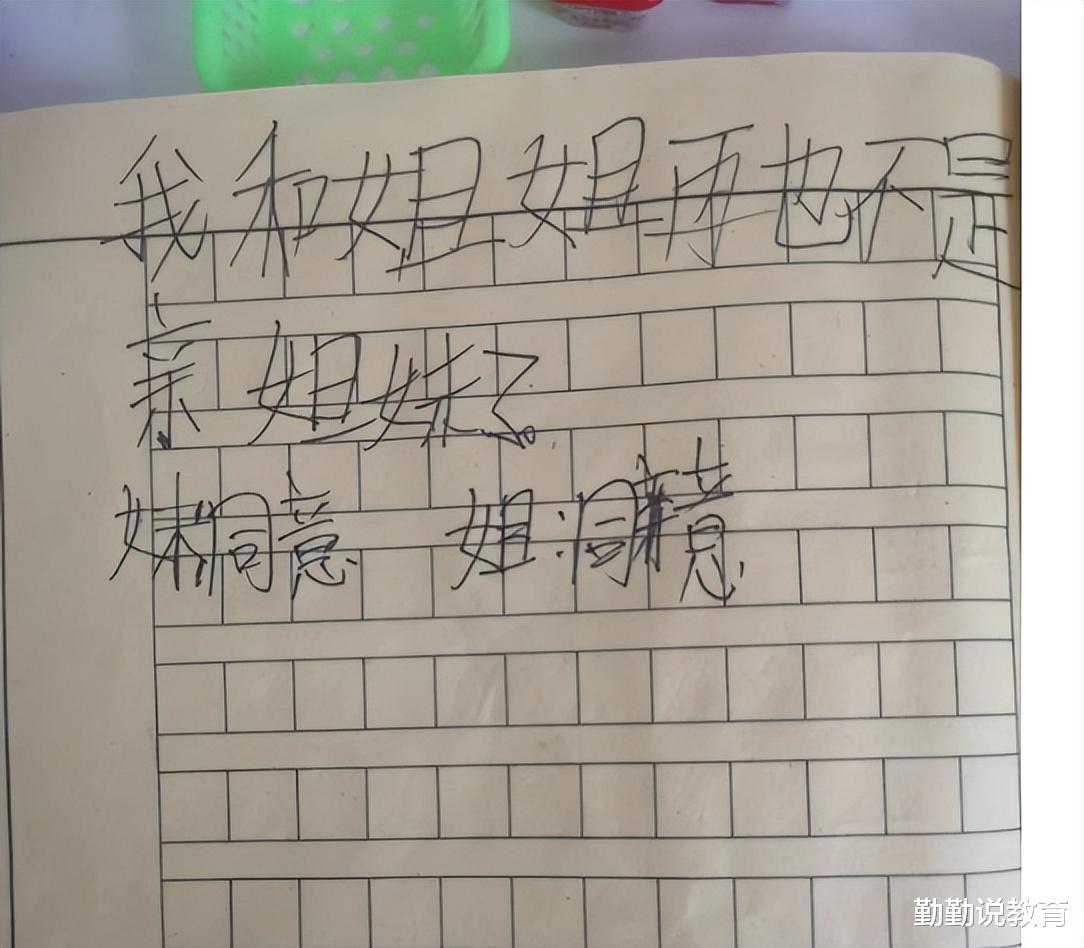 我和姐姐再也不是
亲姐妹了。
妹:同意 姐:同意
勤勤说教育